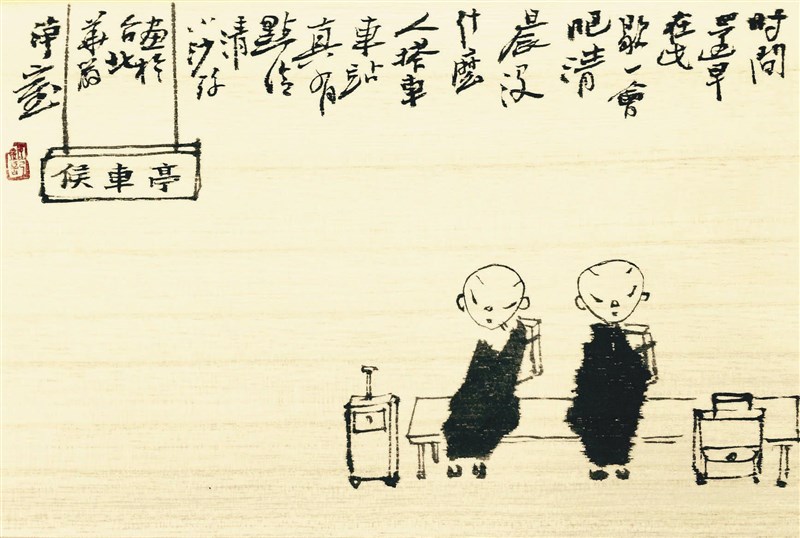 时間
還早
在此
歇一會
吧清
晨没
什麼
人搭車
車站
真有
點冷
清
小沙弥
画於
台北
侯車亭